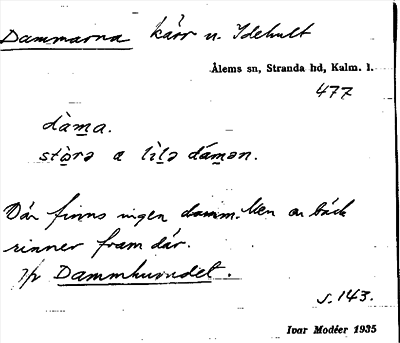 Dammarna kärr u. Idehult
Ålems sn, Stranda hd, Kalm. l.
477
dàma.
stòrə a lìlə dámən.
Där finns ingen damm. Men en bäck
rinner fram där.
Dammhuvudet.
s. 143.
Ivar Modéer 1935